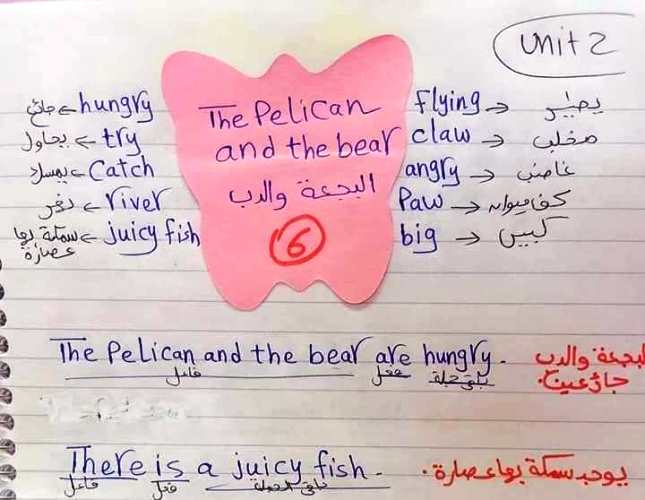 unit 2
The Pelican
and the bear
البجعة والدب
6
hungry → جائع
try → يحاول
Catch → يمسك
river → نهر
juicy fish → سمكة بها
عصارة
Flying → يطير
claw → مخلب
angry → غاضب
Paw → كف حيوان
big → كبير
The Pelican and the bear are hungry.
البجعة والدب
جائعين.
فاعل فعل باقي جملة
There is a juicy fish.
يوجد سمكة بها عصارة.
فاعل فعل باقي الجملة